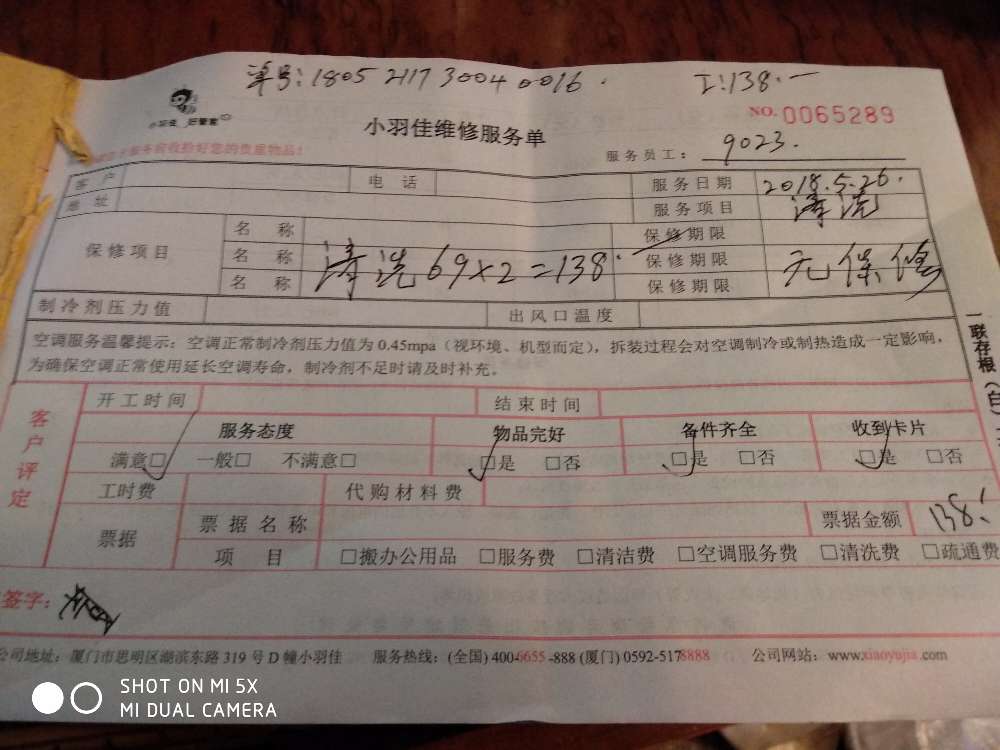 单号:1805 2117 3004 0016. 工:138.一
小羽佳 好管家
NO.0065289
小羽佳维修服务单
服务前收拾好您的贵重物品!
服务员工: 9023.
客户 电话 服务日期 2018.5.26.
地址 服务项目 清洗
保修项目 名称 保修期限
名称 清洗69×2=138. 保修期限 无保修
名称 保修期限
制冷剂压力值 出风口温度
空调服务温馨提示:空调正常制冷剂压力值为0.45mpa(视环境、机型而定),拆装过程会对空调制冷或制热造成一定影响,
为确保空调正常使用延长空调寿命,制冷剂不足时请及时补充。
一联存根(白)
客户评定
开工时间 结束时间
服务态度 物品完好 备件齐全 收到卡片
满意□ 一般□ 不满意□ □是 □否 □是 □否 □是 □否
工时费 代购材料费
票据 票据名称 票据金额 138.
项目 □搬办公用品 □服务费 □清洁费 □空调服务费 □清洗费 □疏通费
签字:
公司地址:厦门市思明区湖滨东路319号D幢小羽佳 服务热线:(全国)400-6655-888 (厦门)0592-5178888 公司网站:www.xiaoyujia.com
SHOT ON MI 5X
MI DUAL CAMERA